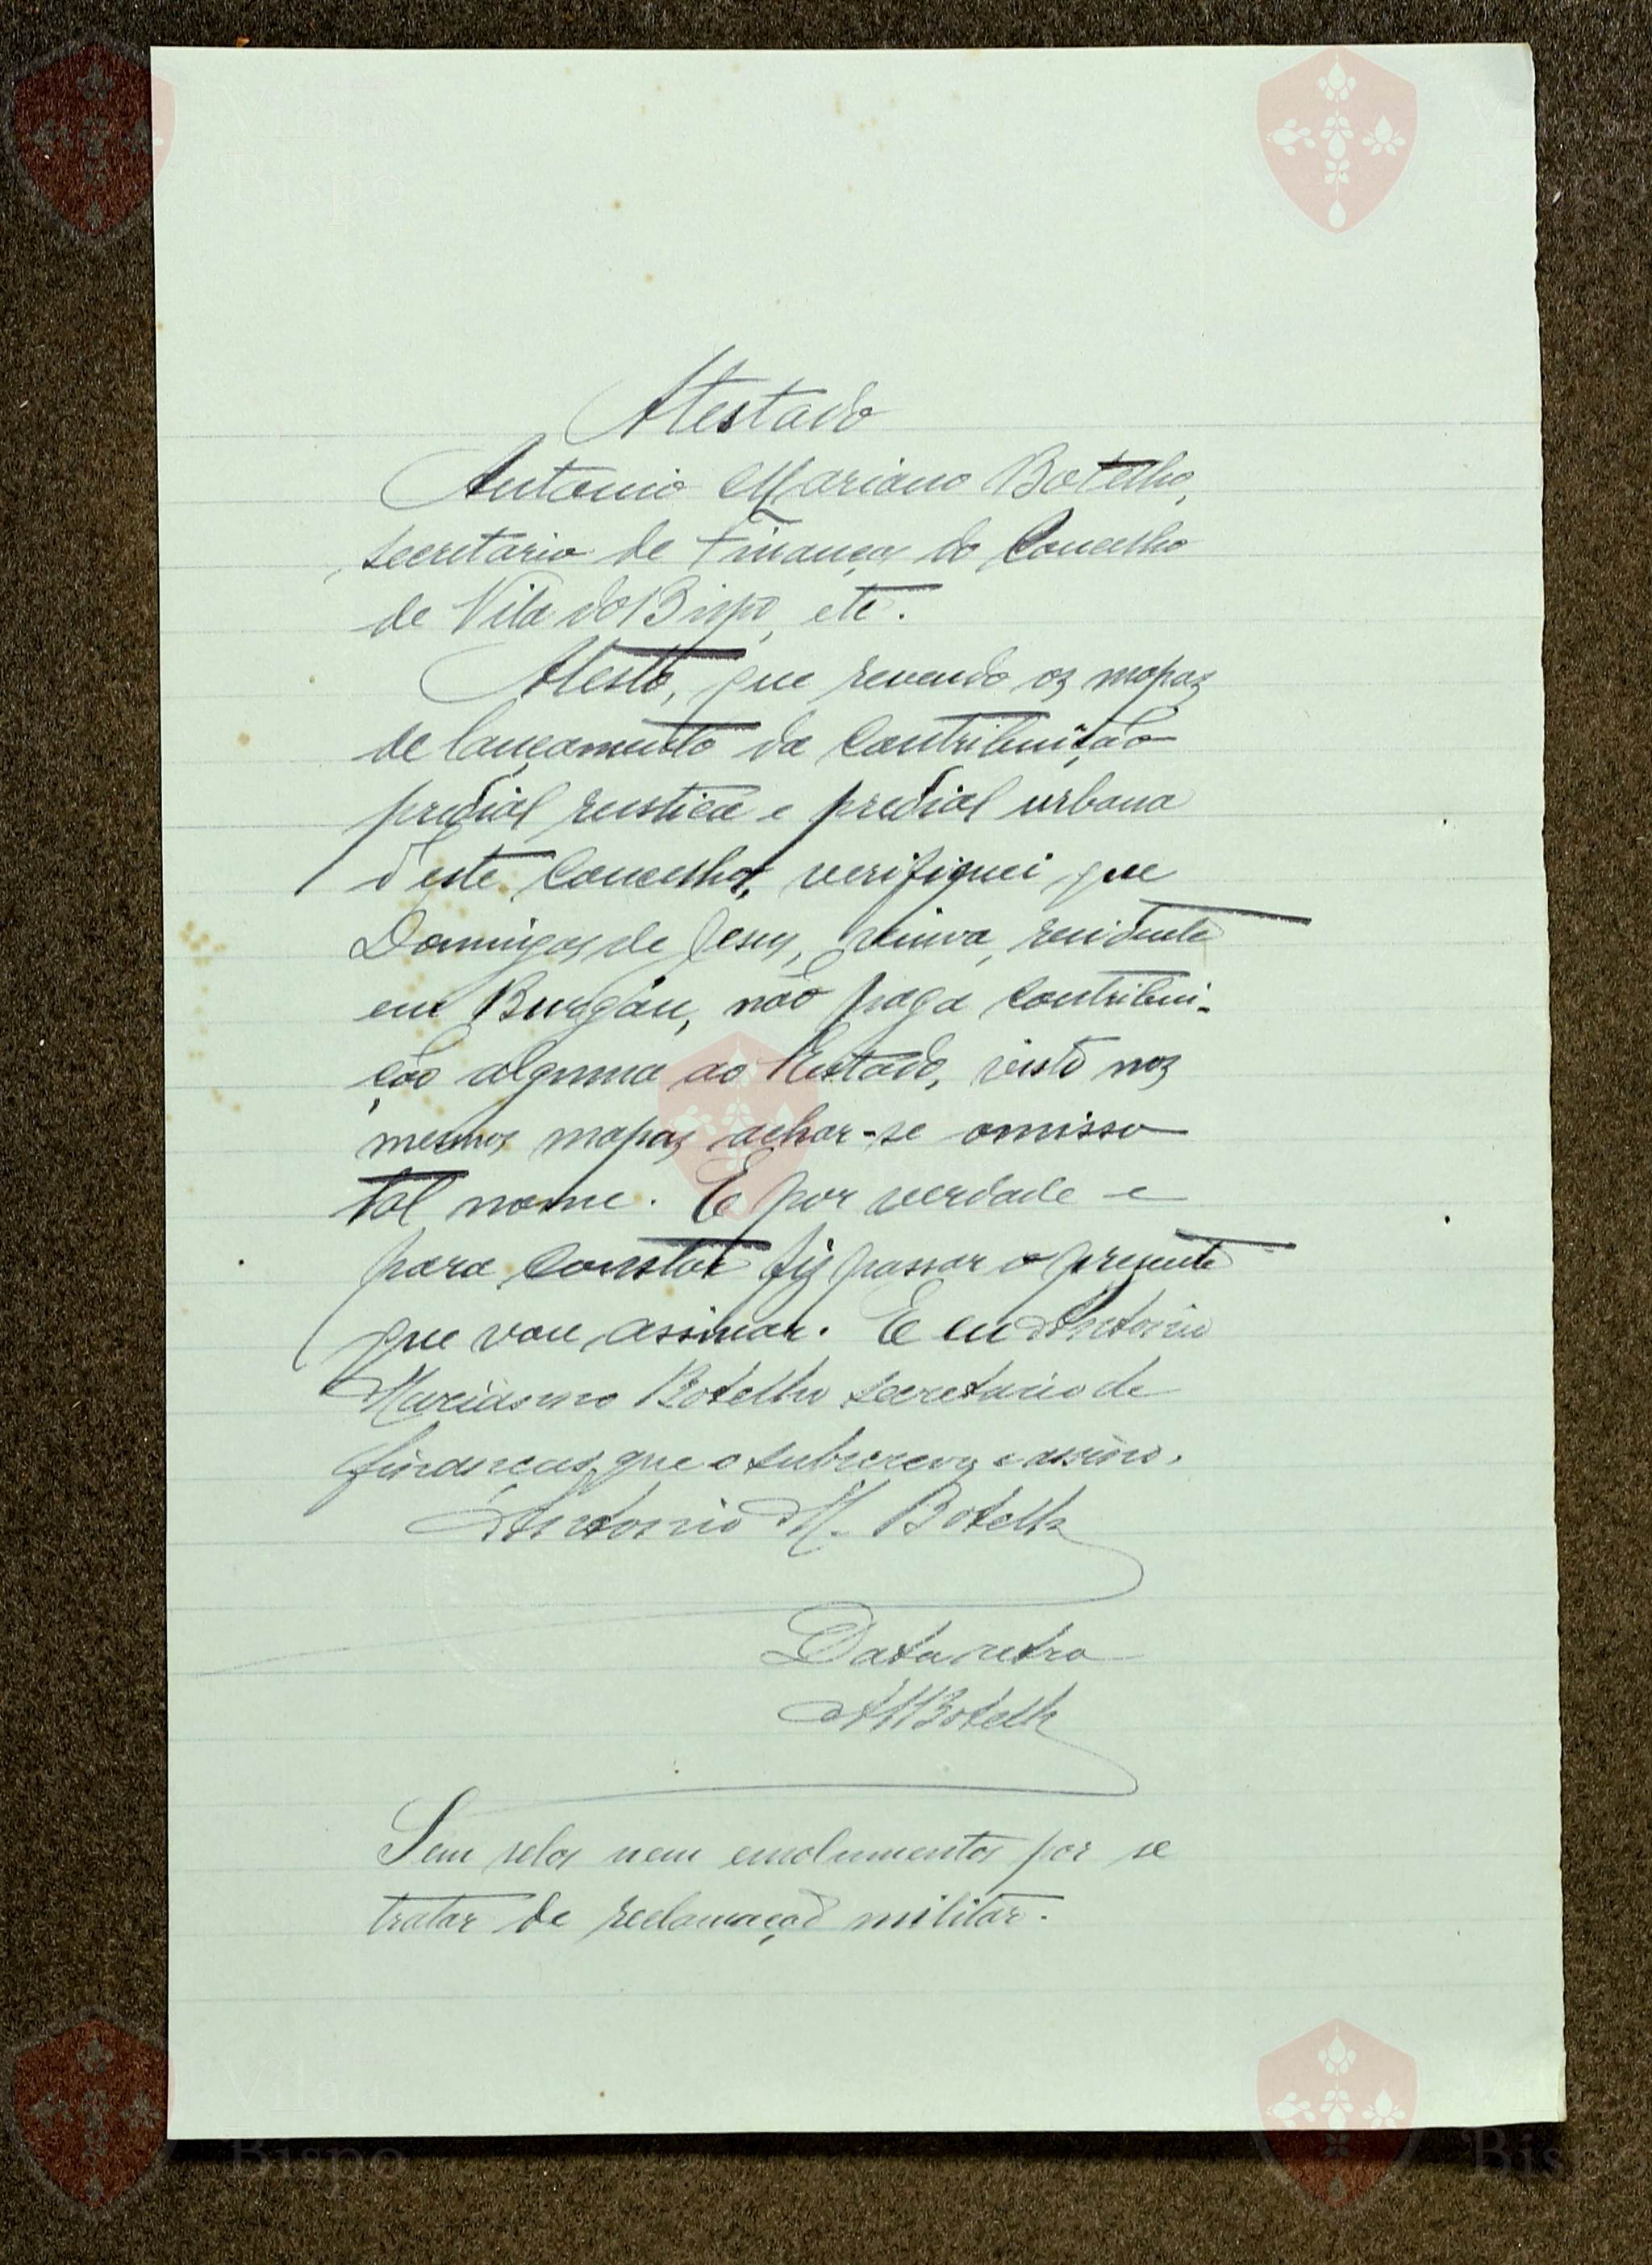 Atestado
Antonio Mariano Botelho,
secretario de Finanças do Concelho
de Vila do Bispo, etc.
Atesto, que revendo os mapas
de lançamento da contribuição
predial rustica e predial urbana
d'este Concelho, verifiquei que
Domingas de Jesus, viuva, residente
em Burgáu, não paga contribui-
ção alguma ao Estado, visto nos
mesmos mapas achar-se omisso
tal nome. E por verdade e
para constar fiz passar o presente
que vou assinar. E eu Antonio
Marianno Botelho secretario de
finanças, que o subscrevy e assino.
Antonio M. Botelho
Data retro
AMBotelho
Sem selos nem emolumentos por se
tratar de reclamação militar.
Vila
Bispo